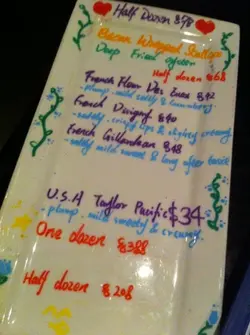 Half Dozen $98
Bacon Wrapped Scallops
Deep Fried oyster
Half dozen $68
French Fleur Des Eaux $42
- plump, mild salty &
French $40
- salty, crispy lips & slightly creamy
French Gillardeau $48
- salty mild sweet & long after taste
U.S.A Taylor Pacific $34
- plump, mild sweety & creamy
One dozen $388
Half dozen $208